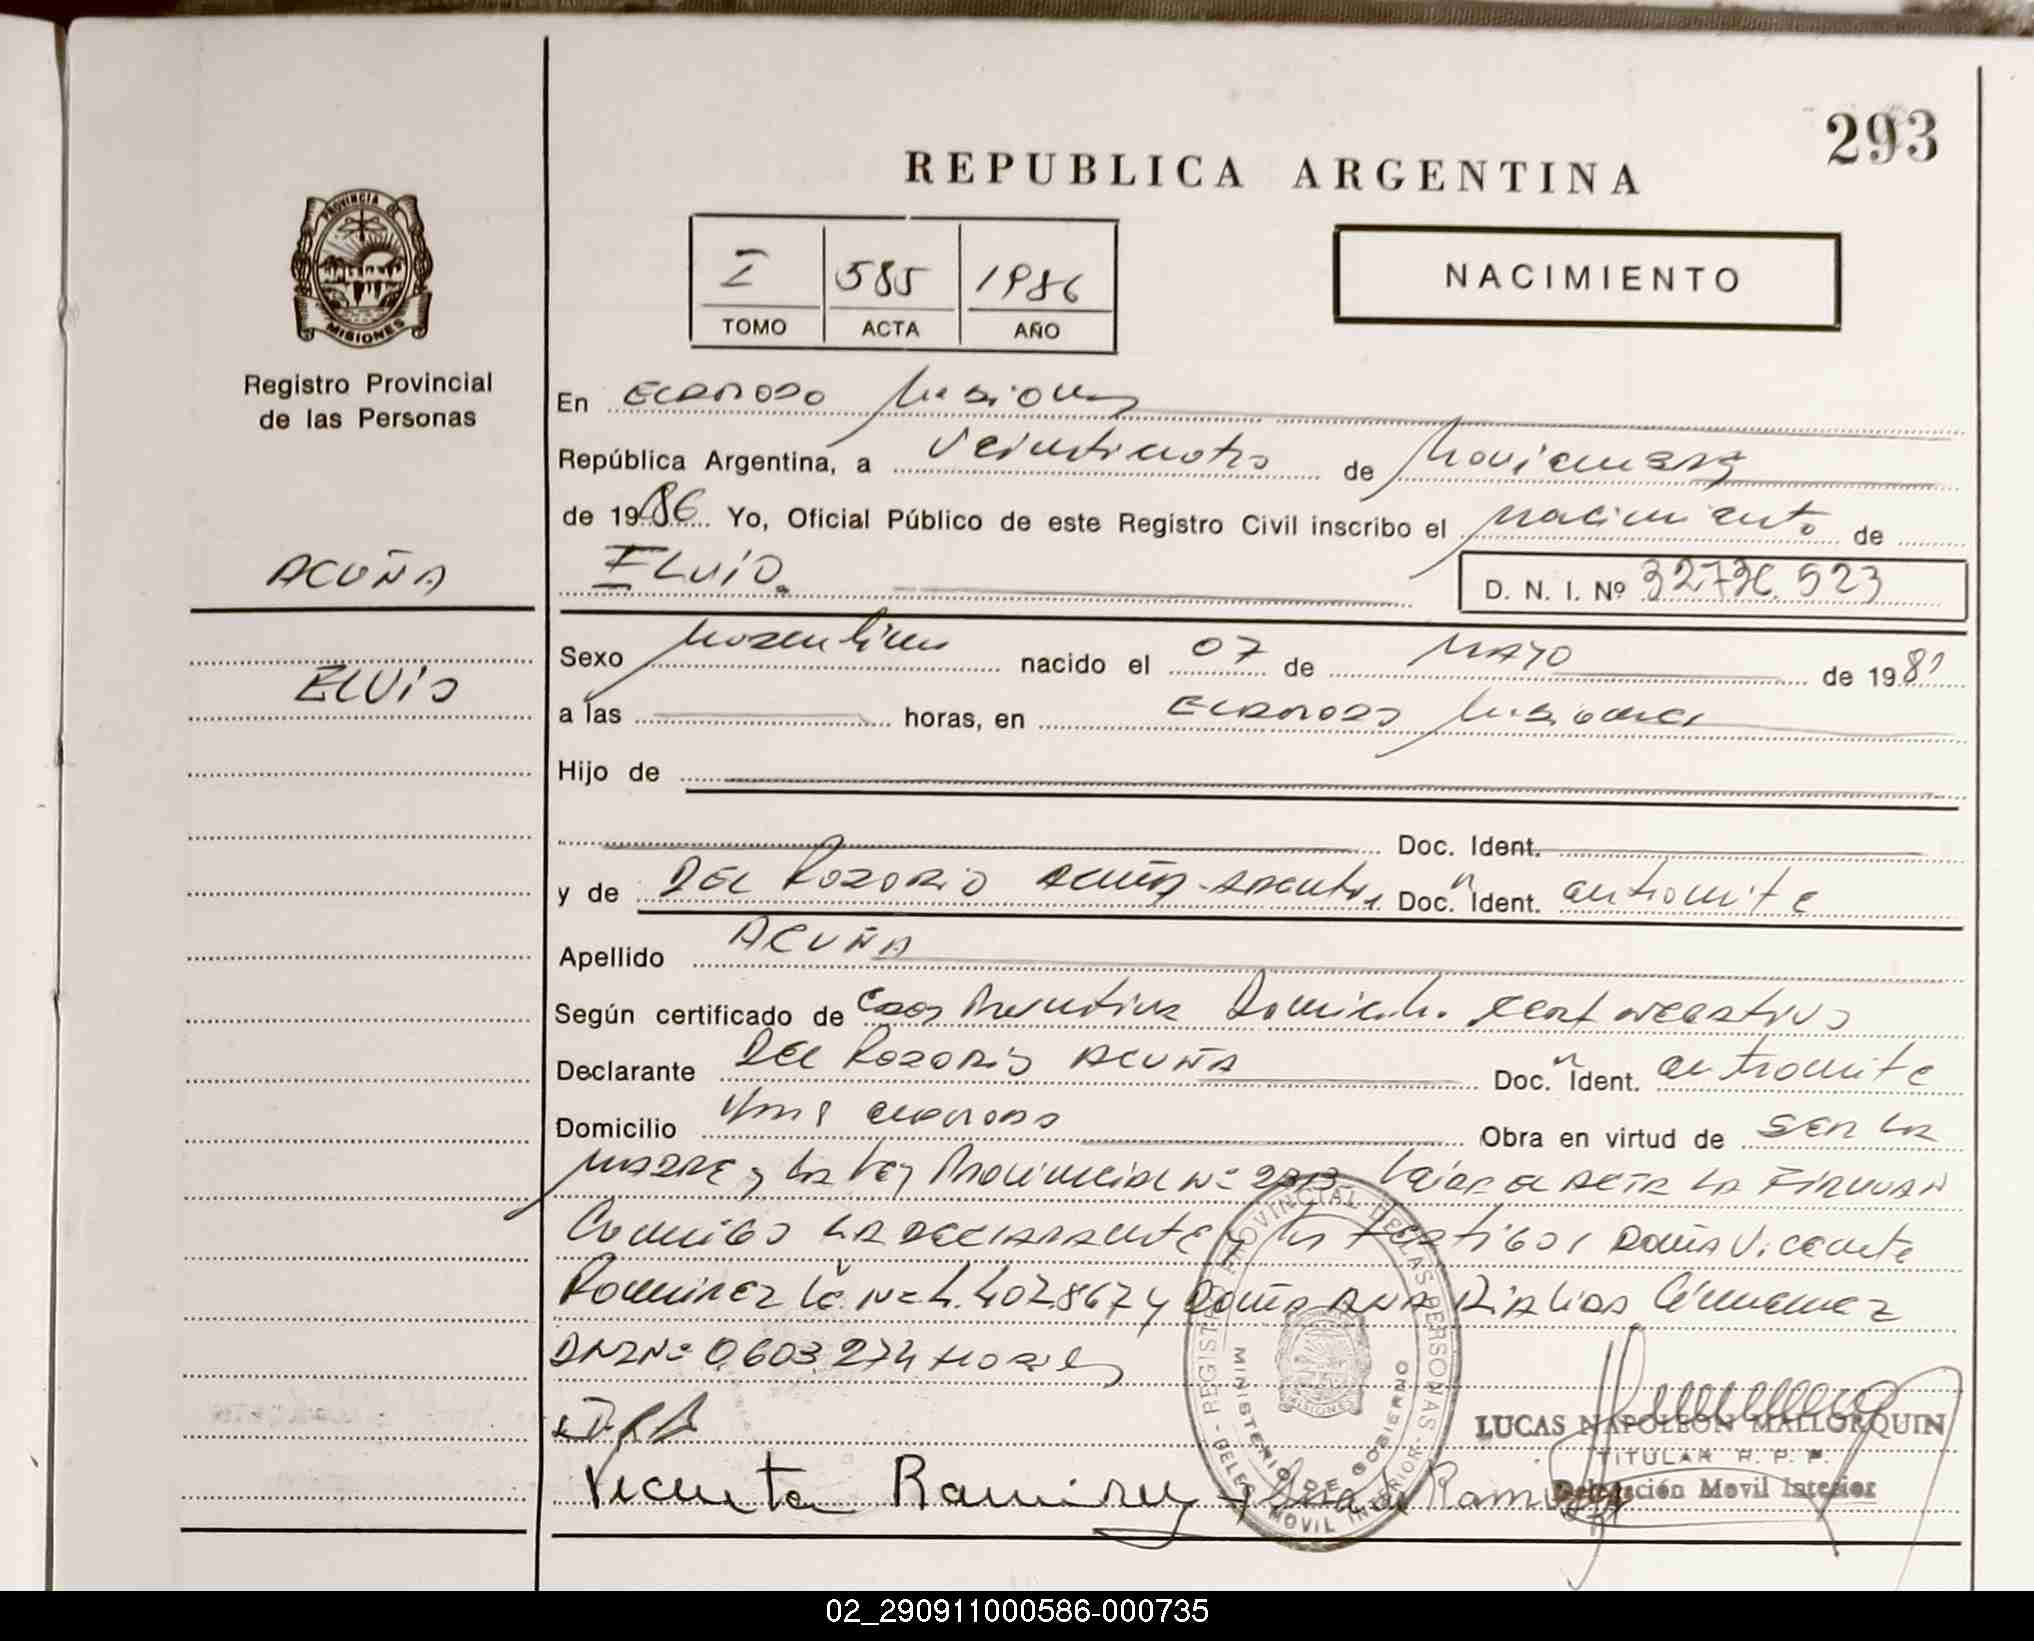 293
REPUBLICA ARGENTINA
I 585 1986
TOMO ACTA AÑO
NACIMIENTO
PROVINCIA DE
MISIONES
Registro Provincial
de las Personas
En ELDORADO Misiones
República Argentina, a Veinticuatro de Noviembre
de 1986 Yo, Oficial Público de este Registro Civil inscribo el Nacimiento de
ACUÑA
ELVIO
D. N. I. Nº 32.736.523
ELVIO
Sexo Masculino nacido el 07 de MAYO de 198
a las horas, en ELDORADO Misiones
Hijo de
Doc. Ident.
y de DEL ROSARIO ACUÑA Doc. Ident. en tramite
Apellido ACUÑA
Según certificado de Domicilio. Cert NEGATIVO
Declarante DEL ROSARIO ACUÑA Doc. Ident. en tramite
Domicilio ELDORADO Obra en virtud de SER LA
MADRE y LA Ley Provincial Nº Leida el ACTA LA FIRMAN
Conmigo LA DECLARANTE y los testigos Doña Vicenta
Ramirez Nº 4.402867 y Doña ANA
DNI Nº 0.603.274
Vicenta Ramirez
Ramirez
REGISTRO PROVINCIAL DE LAS PERSONAS
MINISTERIO DE GOBIERNO
DELEG. MOVIL INTERIOR
MISIONES
LUCAS NAPOLEON MALLORQUIN
TITULAR R. P. P.
Delegación Movil Interior
02_290911000586-000735